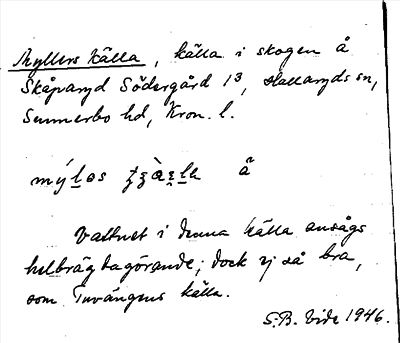 Myllers källa, källa i skogen å
Skåparyd Södergård 1³, Hallaryds sn,
Sunnerbo hd, Kron. l.
Vattnet i denna källa ansågs
helbrägdagörande; dock ej så bra,
som Tuvängens källa.
S.B. Vide 1946.